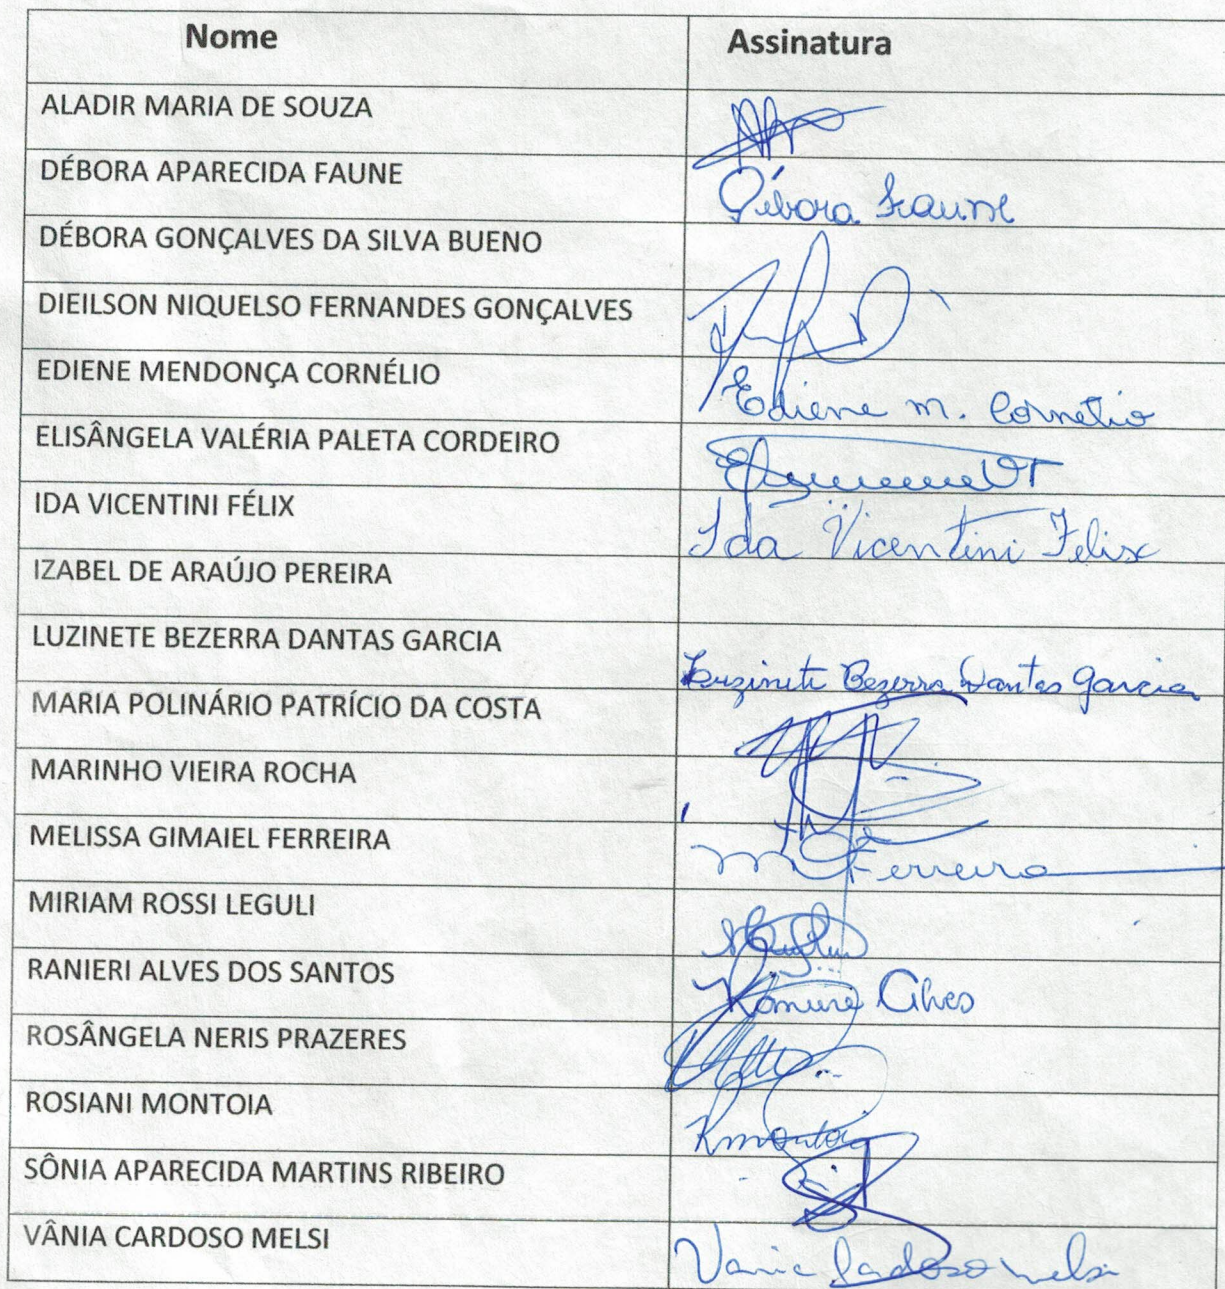 Nome Assinatura
ALADIR MARIA DE SOUZA
DÉBORA APARECIDA FAUNE Débora Faune
DÉBORA GONÇALVES DA SILVA BUENO
DIEILSON NIQUELSO FERNANDES GONÇALVES
EDIENE MENDONÇA CORNÉLIO Ediene m. Cornélio
ELISÂNGELA VALÉRIA PALETA CORDEIRO
IDA VICENTINI FÉLIX Ida Vicentini Felix
IZABEL DE ARAÚJO PEREIRA
LUZINETE BEZERRA DANTAS GARCIA Luzinete Bezerra Dantas Garcia
MARIA POLINÁRIO PATRÍCIO DA COSTA
MARINHO VIEIRA ROCHA
MELISSA GIMAIEL FERREIRA M Ferreira
MIRIAM ROSSI LEGULI
RANIERI ALVES DOS SANTOS Alves
ROSÂNGELA NERIS PRAZERES
ROSIANI MONTOIA Rmontoia
SÔNIA APARECIDA MARTINS RIBEIRO
VÂNIA CARDOSO MELSI Vania Cardoso Melsi